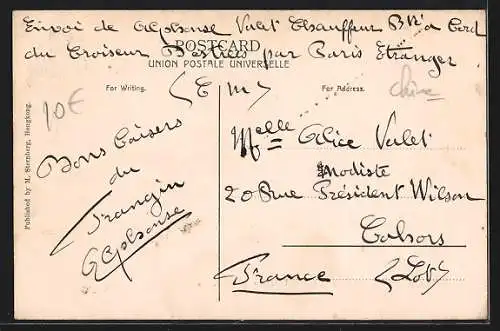 Envoi de Alphonse Valet Chauffeur Bté à bord
du Croiseur Desaix par Paris Etranger
POSTCARD
UNION POSTALE UNIVERSELLE
(E m)
For Writing.
For Address.
Chine
10€
Bons baisers
du
Frangin
Alphonse
Melle Alice Valet
Modiste
20 Rue Président Wilson
Cahors
France (Lot)
Published by M. Sternberg, Hongkong.